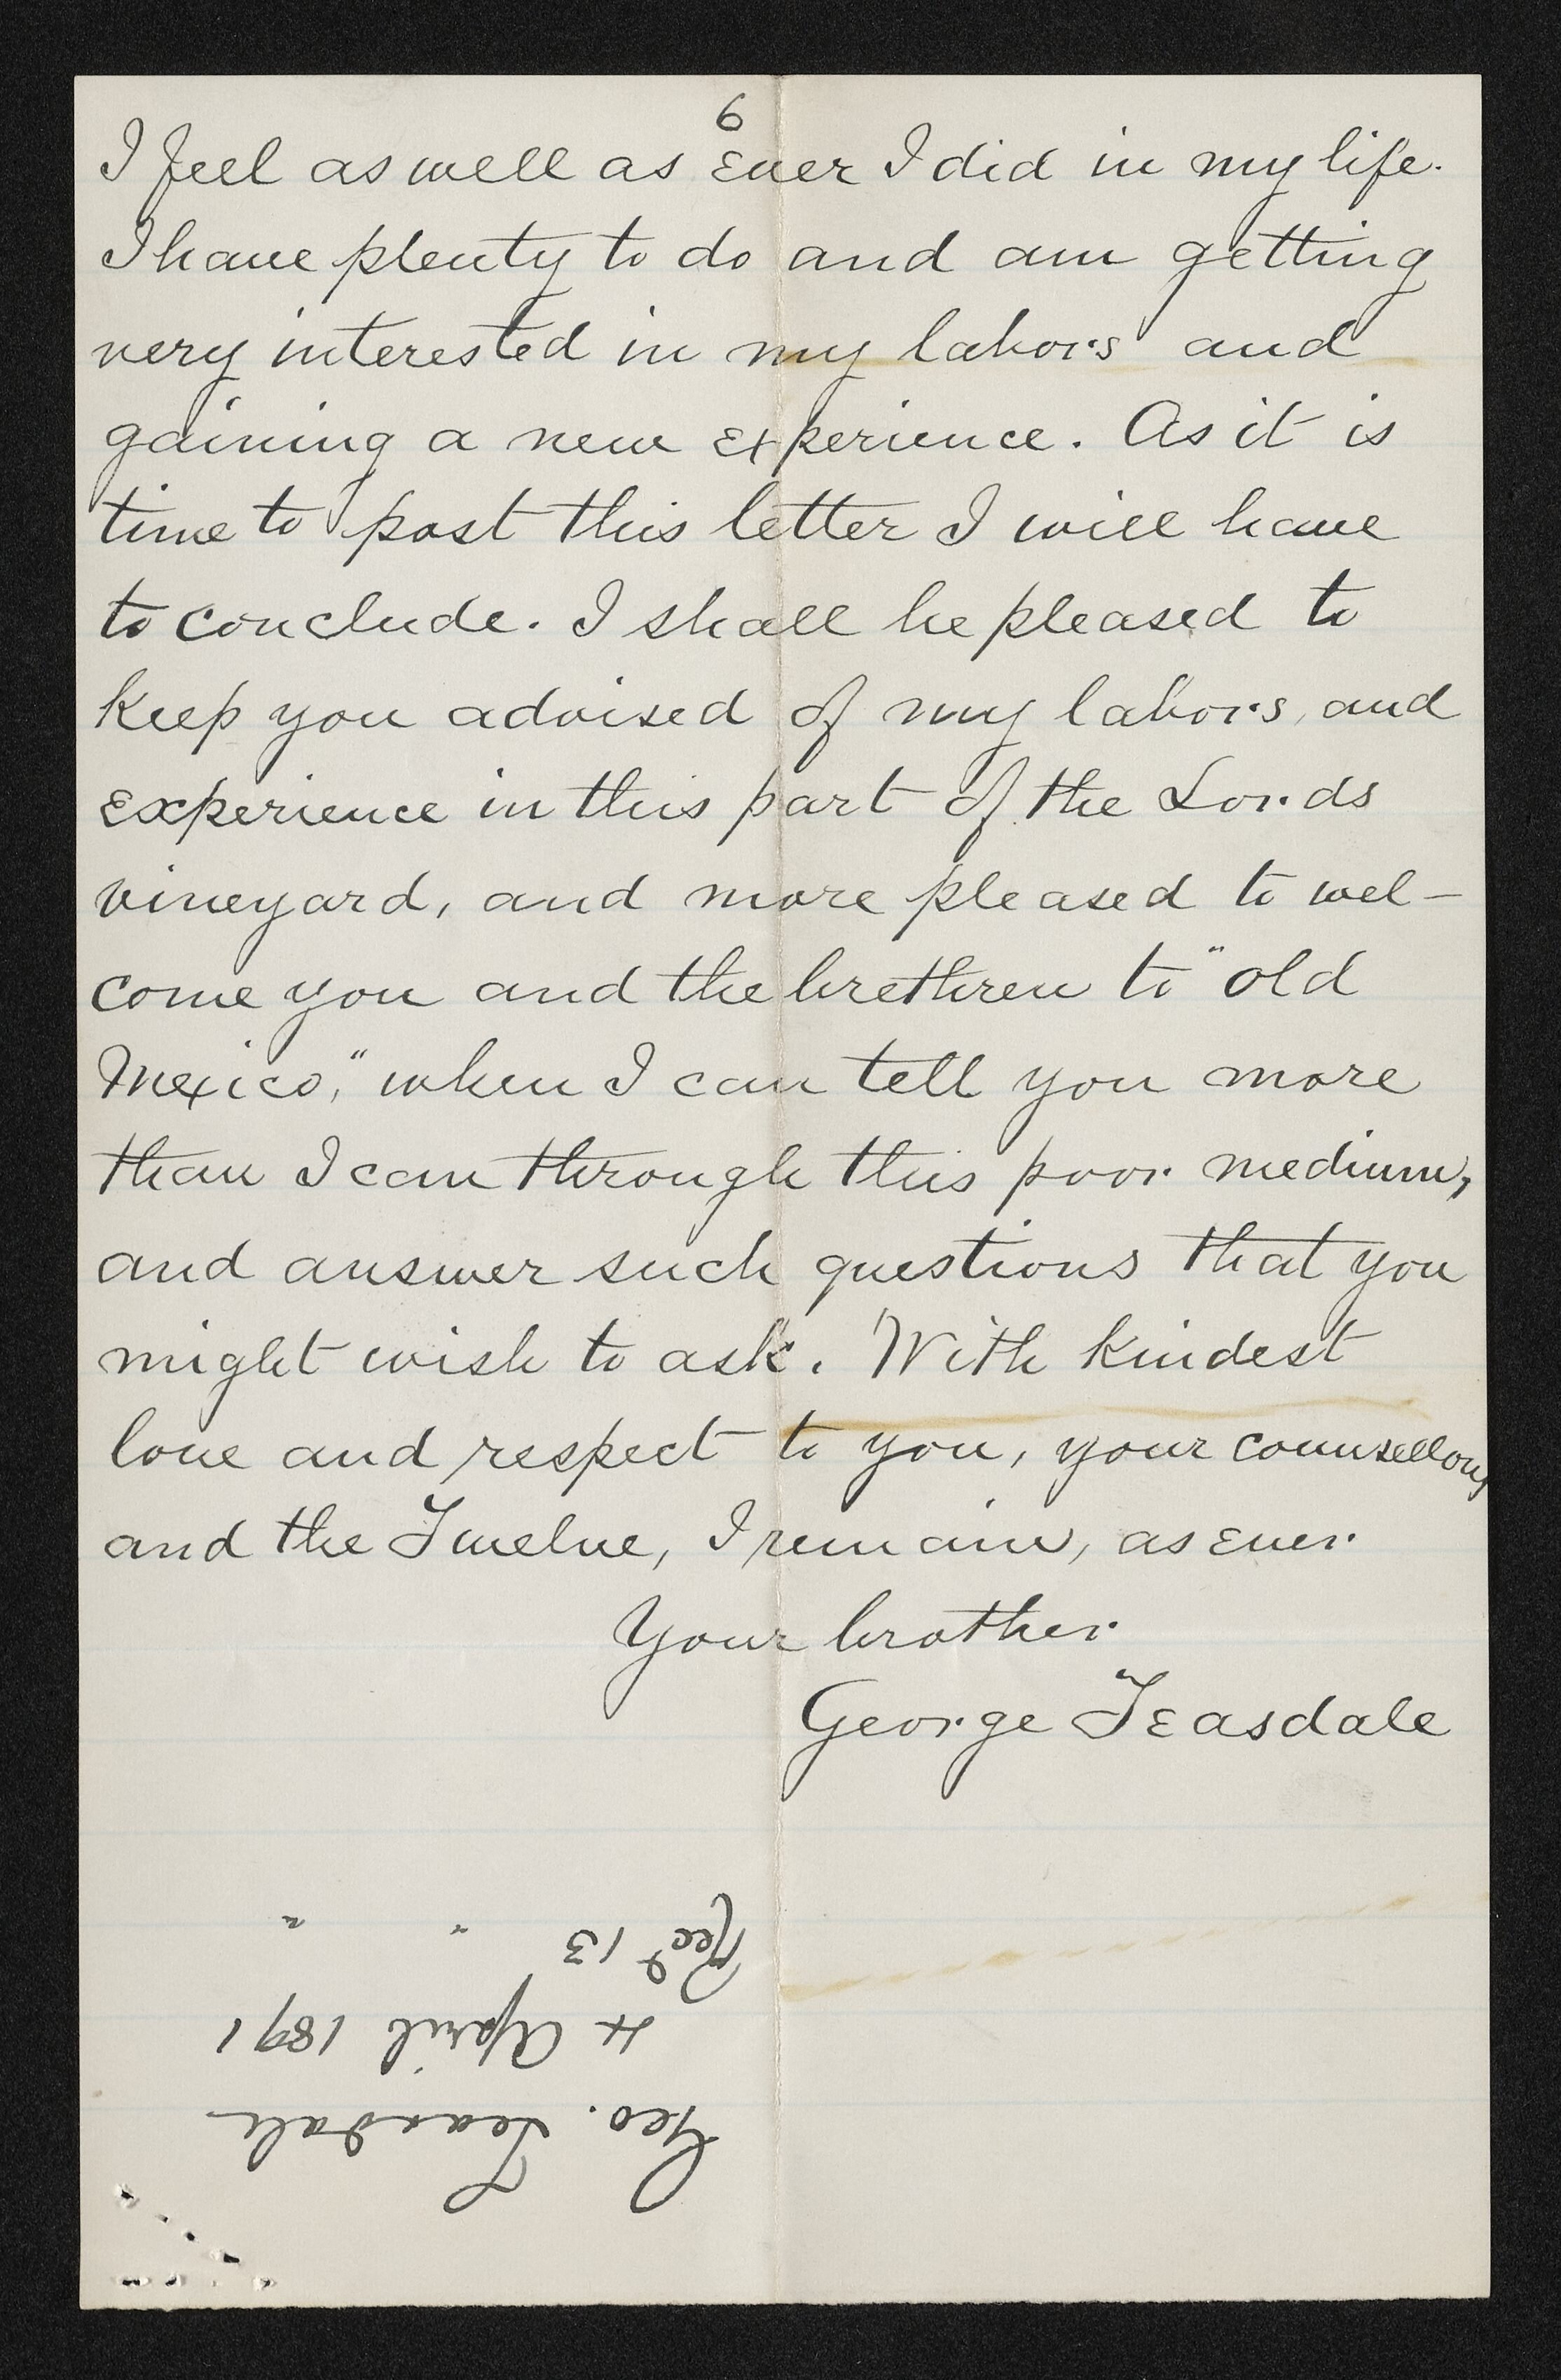 6
I feel as well as ever I did in my life.
I have plenty to do and am getting
very interested in my labors and
gaining a new experience. As it is
time to post this letter I will have
to conclude. I shall be pleased to
keep you advised of my labors, and
experience in this part of the Lords
vineyard, and more pleased to wel-
come you and the brethren to "old
Mexico," when I can tell you more
than I can through this poor medium,
and answer such questions that you
might wish to ask. With kindest
love and respect to you, your counsellors
and the Twelve, I remain, as ever
Your brother
George Teasdale
Geo. Teasdale
4 April 1891
Recd 13 " "